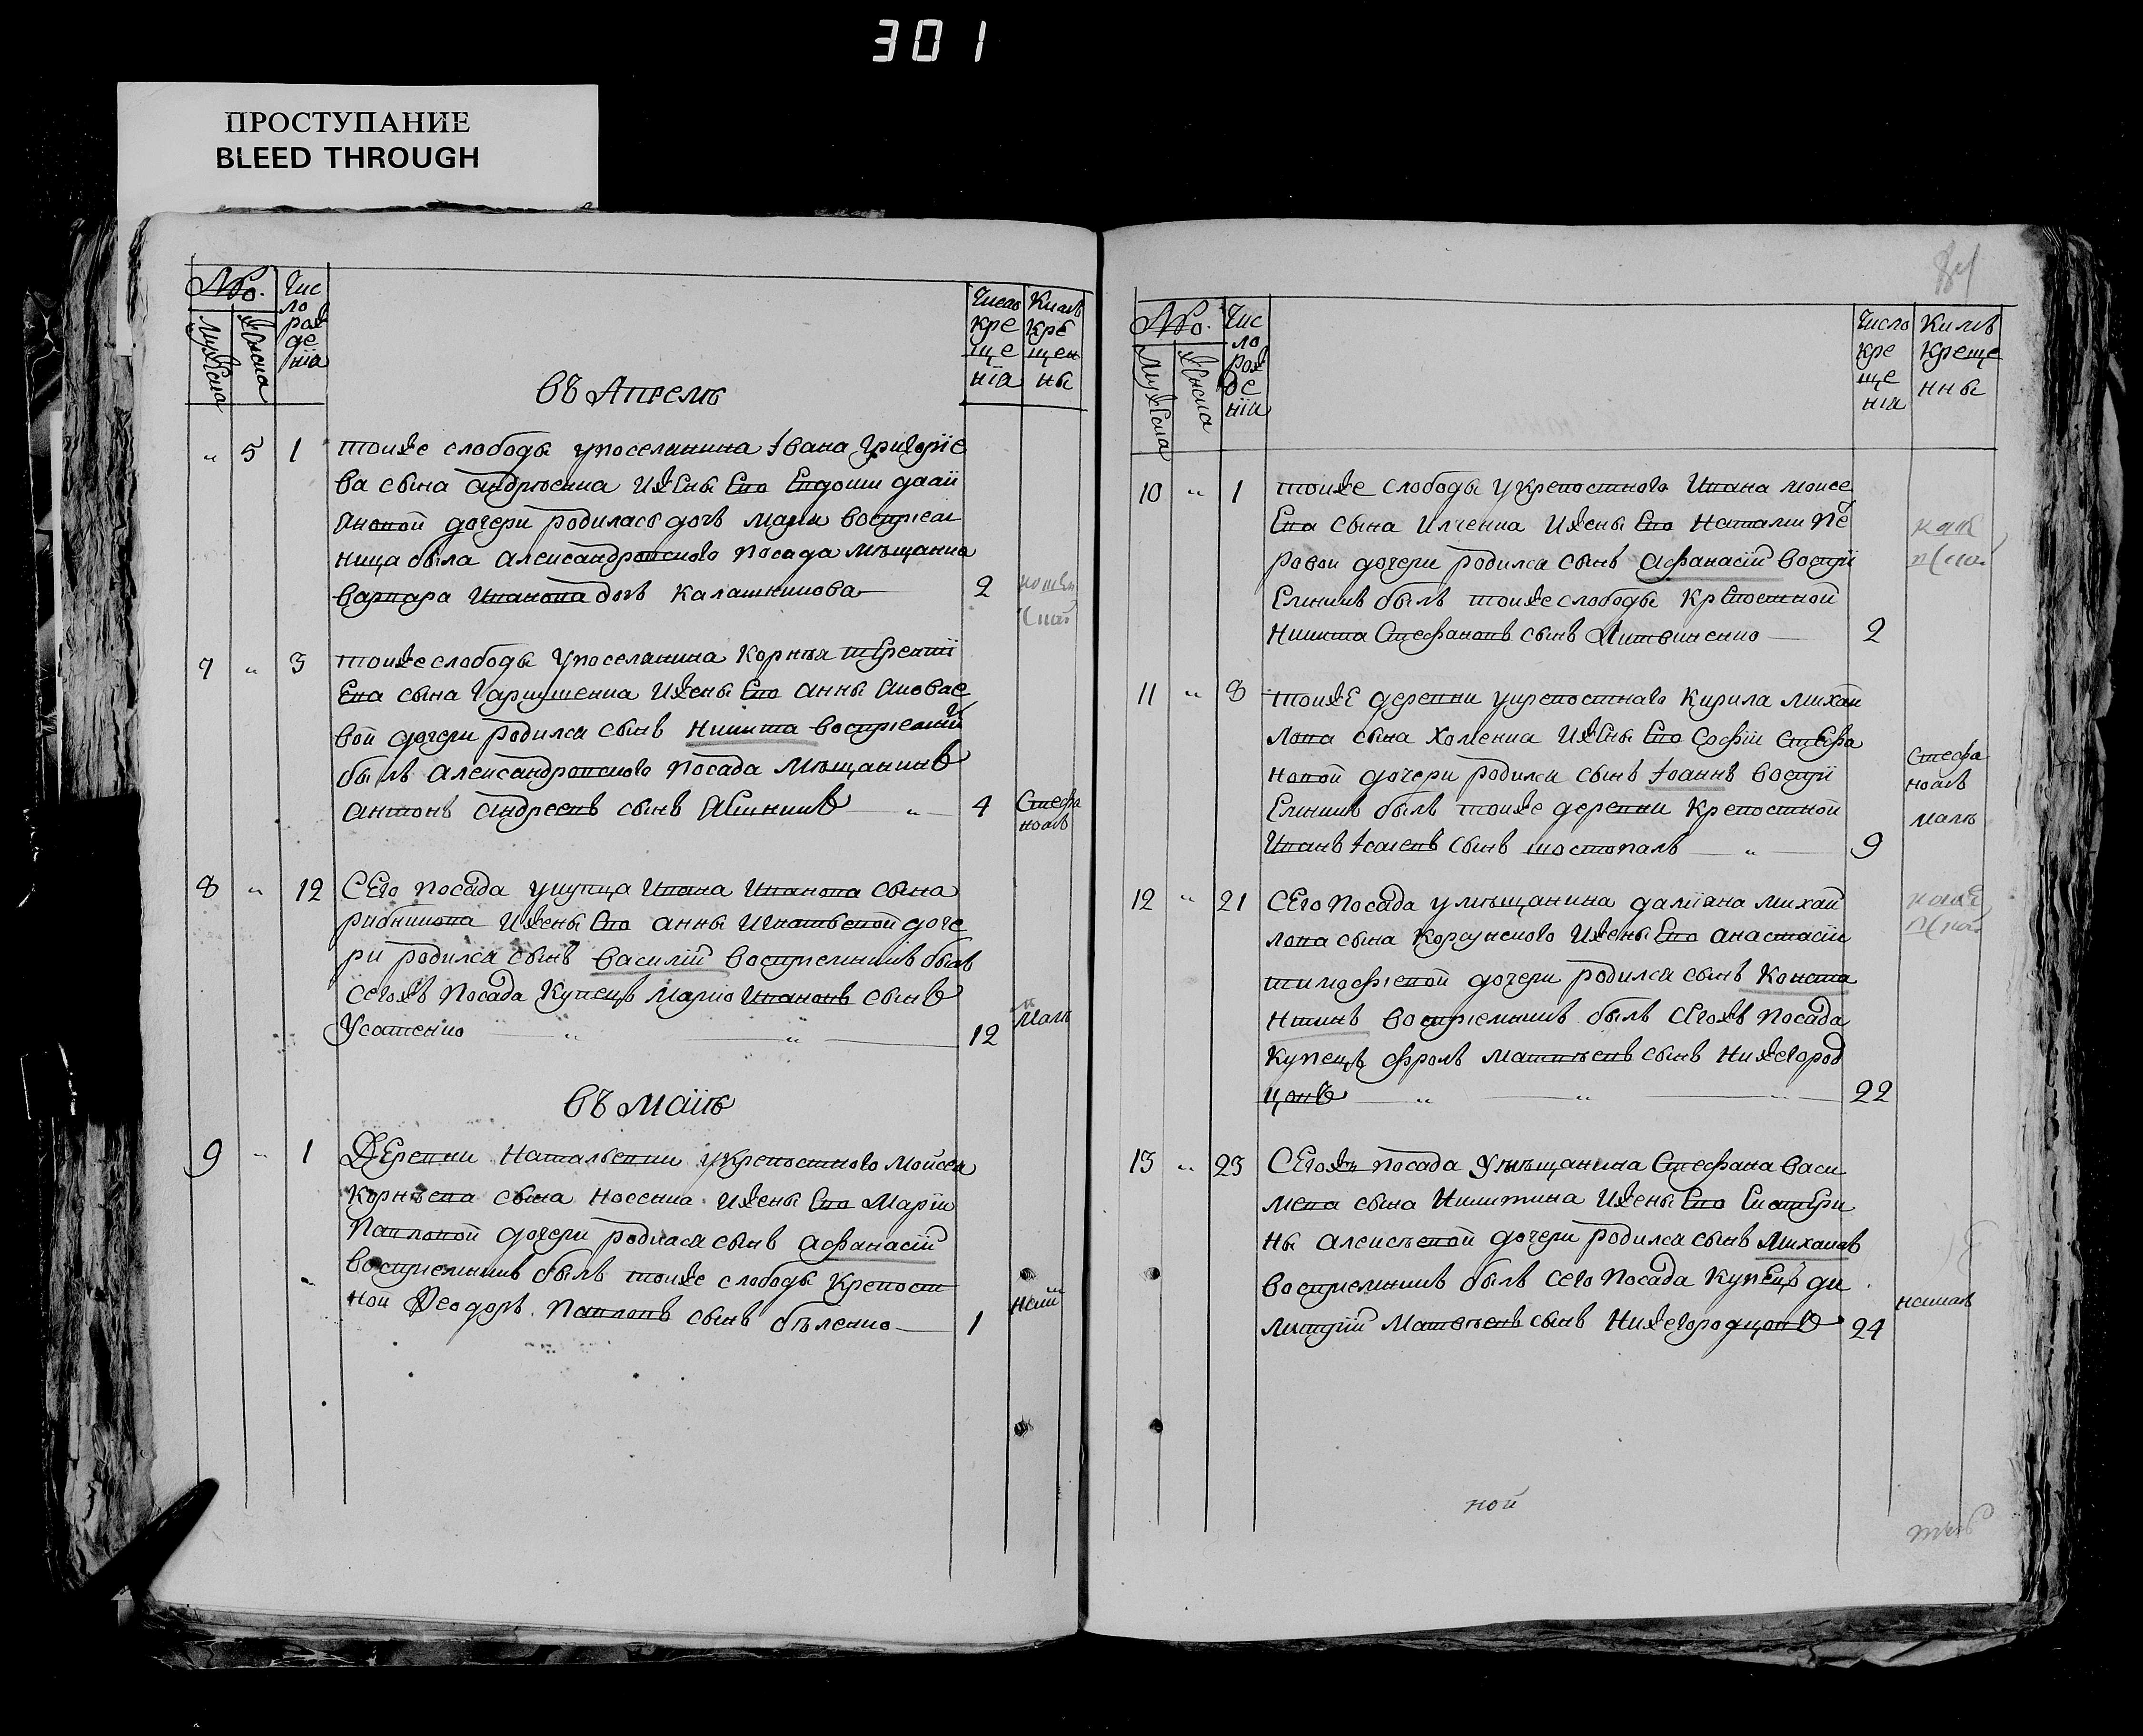 301
ПРОСТУПАНИЕ
BLEED THROUGH
№
Чис
ло
рож
де
нїа
Число
кре
ще
нїа
Кимъ
кре
щен
ны
въ Апрелѣ
„ 5 1 тоиже слободы упоселанина Івана григорїе
ва сына андрюсика ижены его Евдокии даої
ановой дочери родиласа дочь Мариа воспрїем
ница была александровского посада мѣщанка
варвара Иванова дочъ калашникова 2
7 „ 3 тоиже слободы упоселанина корнѣя терентї
Ева сына ижены его анны Аковле
вой дочери родилса сынъ никита воспрїемник
былъ александровского посада мѣщанинъ
антонъ андреевъ сынъ „ 4
Стефа
номъ
8 „ 12 СЕго посада укупца Ивана Иванова сына
ижены его анны Игнатьевой доче
ри родилса сынъ василїй воспрїемникъ былъ
сегожъ посада купецъ Марко Ивановъ сынъ
Усатенко „ „ 12
въ маїѣ
9 „ 1 Деревни Натальевки укрепостного Моисеа
корнѣева сына носенка ижены его Марїи
Павловой дочери родилса сынъ афанасїй
воспрїемникъ былъ тоиже слободы крепост
ной Феодоръ Павловъ сынъ бѣленко 1
№
Чис
ло
рож
де
нїа
Число
кре
ще
нїа
Кимъ
креще
нны
10 „ 1 тоиже слободы укрепостного Ивана моисе
Ева сына илченка ижены его наталии пе
ровои дочери родилса сынъ афанасїй воспрї
Емникъ былъ тоиже слободы крепостной
никита Стефановъ сынъ Литвиненко 2
11 „ 8 тоиже деревни укрепостного кирила михаи
лова сына хоменка ижены его софїи стефа
новой дочери родилса сынъ Іоаннъ воспрї
Емникъ былъ тоиже деревни крепостной
Иванъ Ісаевъ сынъ шостопалъ „ 9
Стефа
номъ
12 „ 21 СЕго посада умѣщанина дамїана михаи
лова сына корсунского ижены его анастасїи
тимофѣевой дочери родилса сынъ конста
нтинъ воспрїемникъ былъ сегожъ посада
купецъ фролъ матвѣевъ сынъ нижегород
цовъ „ „ „ 22
13 „ 23 СЕгожъ посада умѣщанина Стефана васи
лиева сына никитина ижены его Екатери
ны алексѣевой дочери родилса сынъ михаилъ
воспрїемникъ былъ сего посада купецъ ди
митрїй матвѣевъ сынъ нижегородцовъ 24
ной